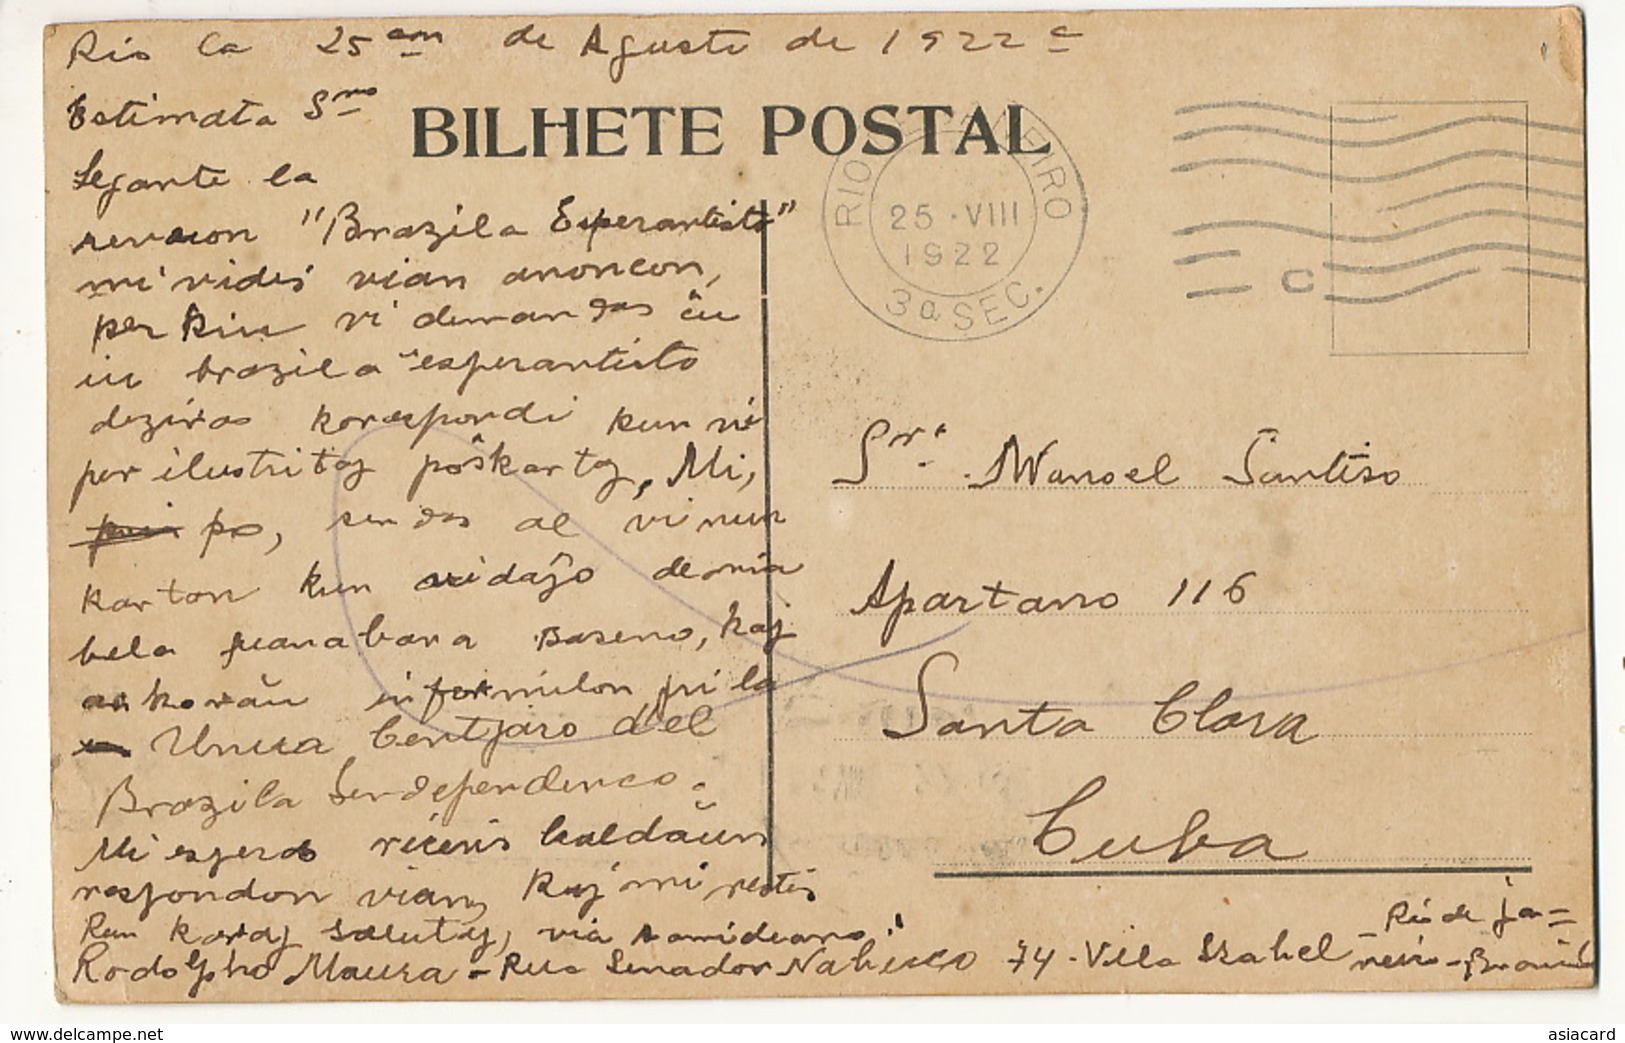 Rio la 25an de Agusto de 1922a
Estimata Sro
BILHETE POSTAL
Legante la
revuon "Brazila Esperantisto"
mi vidis vian anoncon,
per kiu vi demandas ĉu
iu brazila esperantisto
deziras korespondi kun vi
per ilustritaj poŝkartoj, Mi,
po, sendas al vi nun
karton kun vidaĵo de nia
bela guanabara Baseno, kaj
ankoraŭ informilon pri la
Unua Centjaro del
Brazila Sendependenco.
Mi esperas ricevis baldaŭn
respondon vian, kaj mi restis
kun koraj salutoj, via samideano.
Rodolpho Maura - Rua Senador Nabuco 74 - Villa Izabel - Rio de Ja=
neiro - Brazilo
RIO NEIRO
25 · VIII
1922
3a SEC.
C
Sr. Manoel Santiso
Apartano 116
Santa Clara
Cuba
www.delcampe.net
asiacard